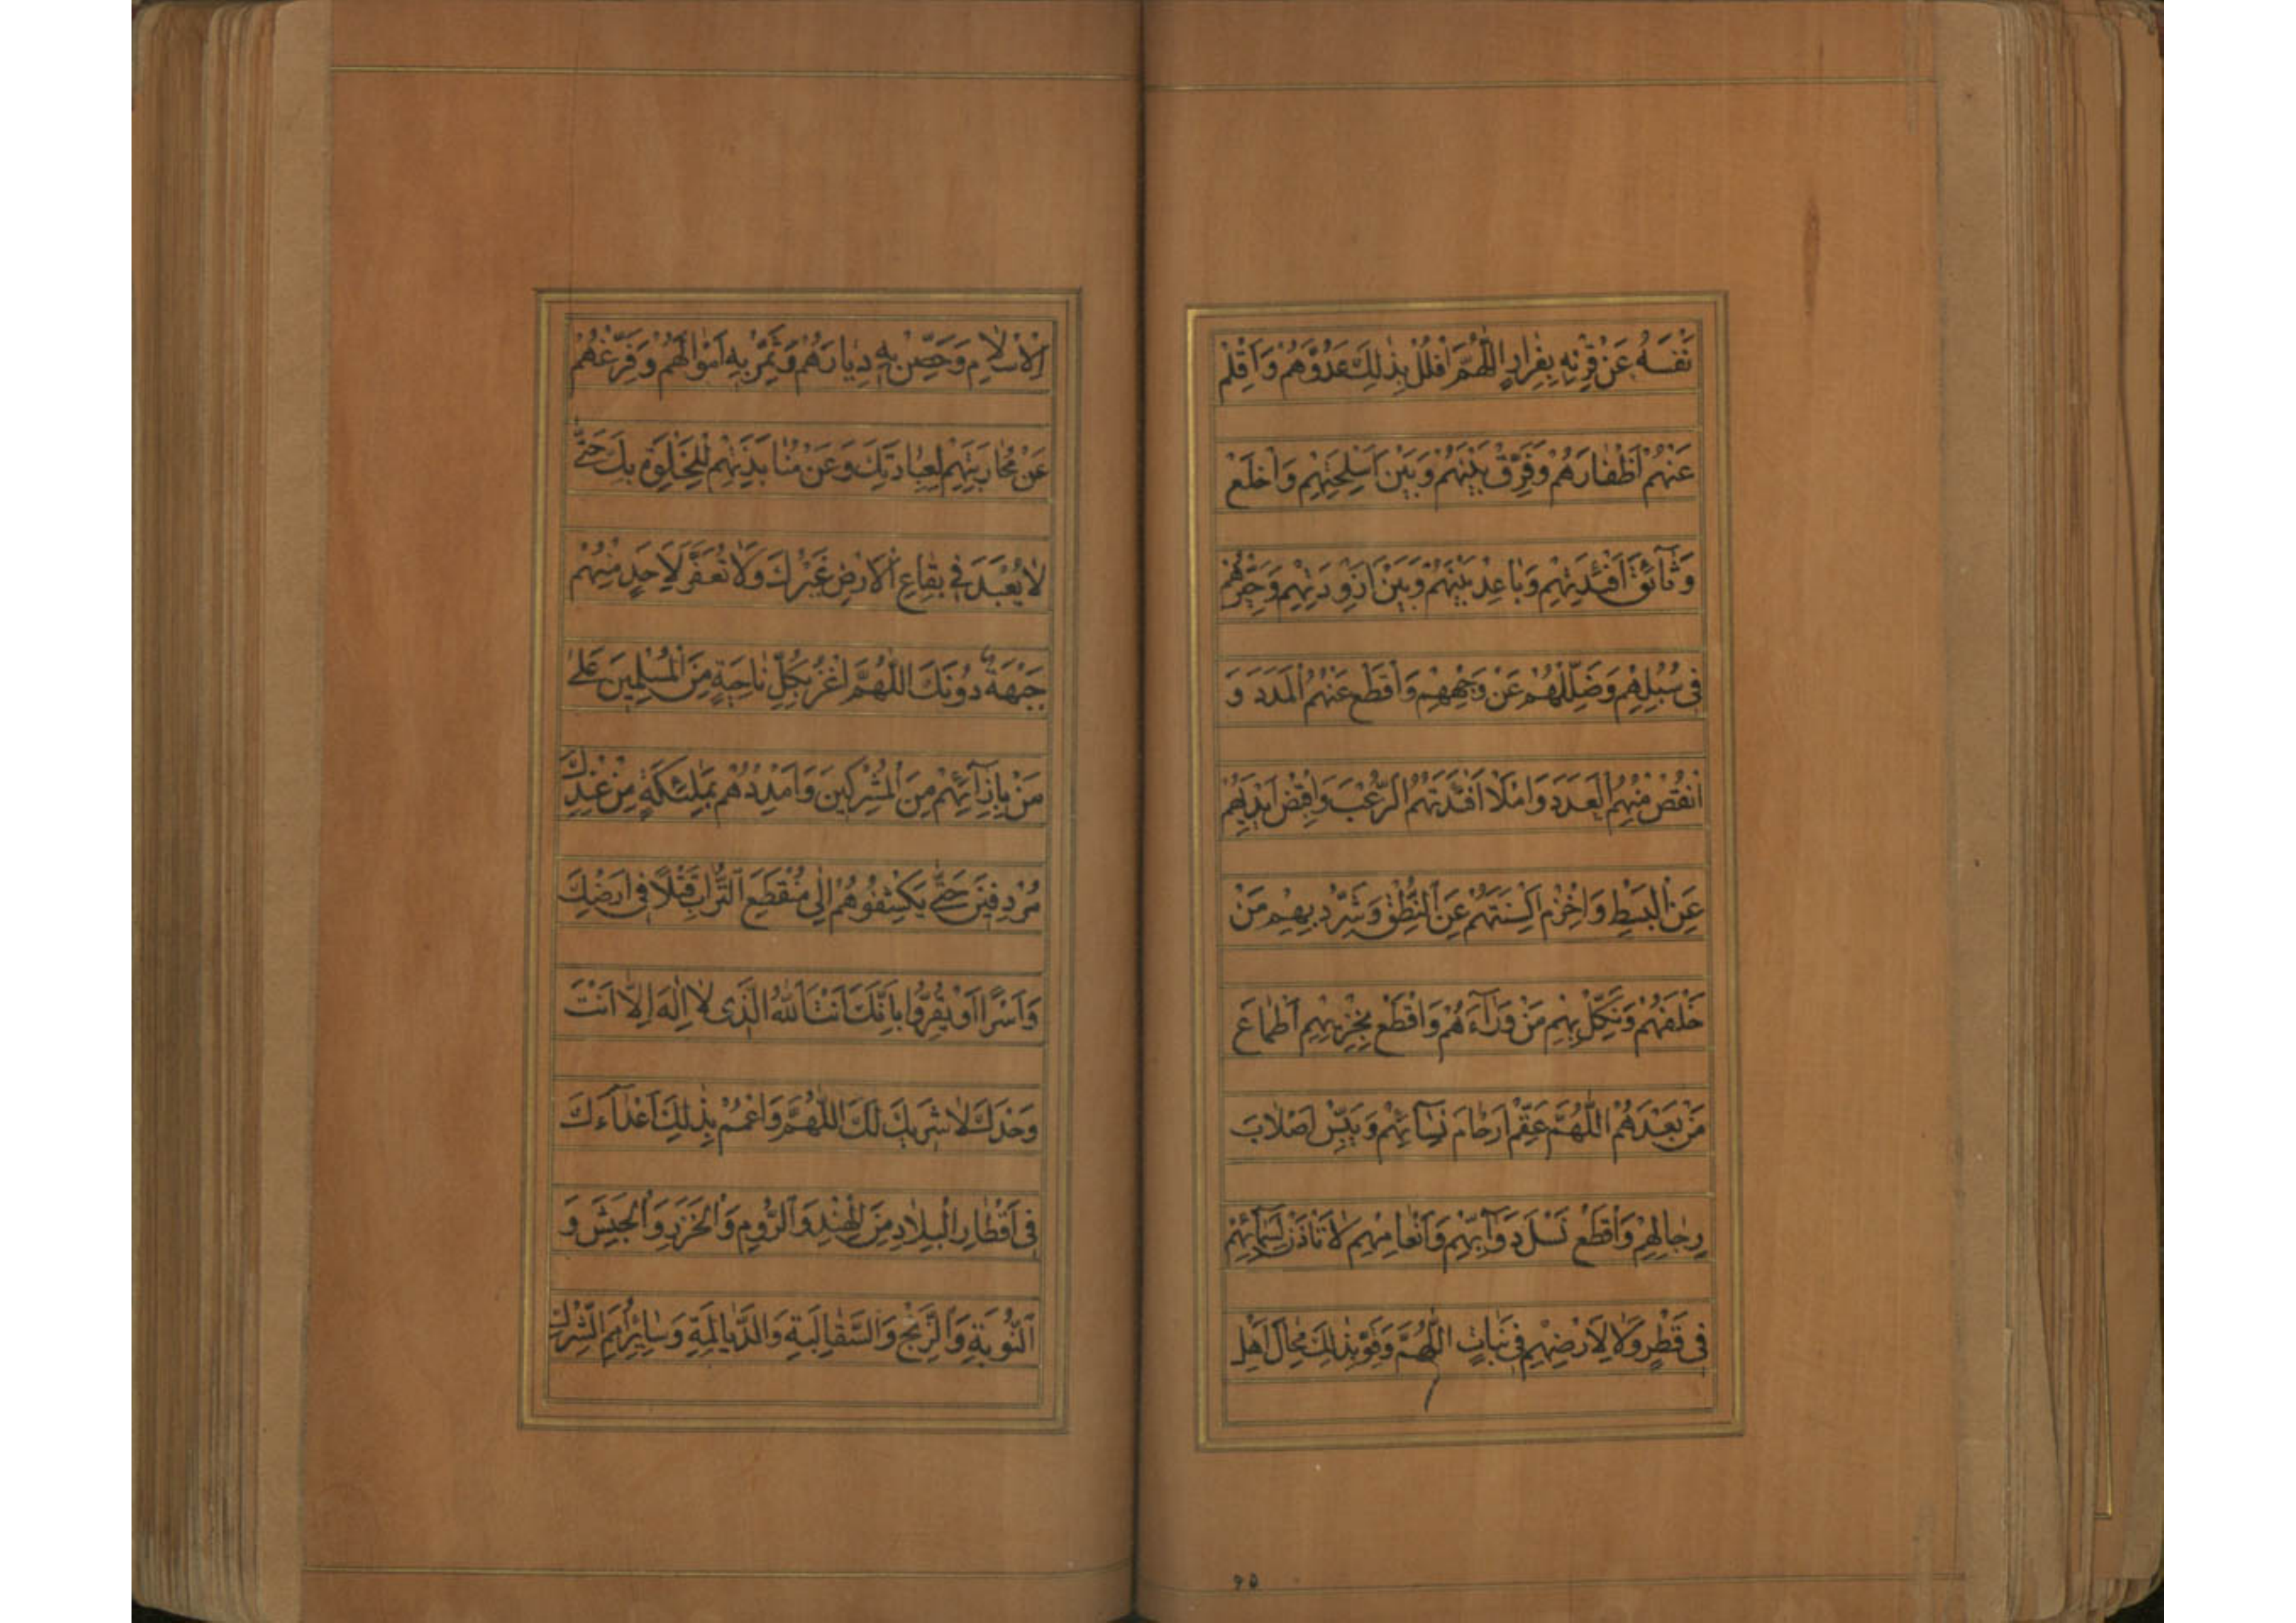 نَفْسَهُ عَنْ قِرْنِهِ بِفِرَارٍ اللّٰهُمَّ افْلُلْ بِذٰلِكَ عَدُوَّهُمْ وَاَقْلِمْ
عَنْهُمْ اَظْفَارَهُمْ وَفَرِّقْ بَيْنَهُمْ وَبَيْنَ اَسْلِحَتِهِمْ وَاخْلَعْ
وَثَآئِقَ اَفْئِدَتِهِمْ وَبَاعِدْ بَيْنَهُمْ وَبَيْنَ اَزْوِدَتِهِمْ وَحَيِّرْهُمْ
فِي سُبُلِهِمْ وَضَلِّلْهُمْ عَنْ وَجْهِهِمْ وَاقْطَعْ عَنْهُمُ الْمَدَدَ وَ
انْقُصْ مِنْهُمُ الْعَدَدَ وَامْلَأْ اَفْئِدَتَهُمُ الرُّعْبَ وَاقْبِضْ اَيْدِيَهُمْ
عَنِ الْبَسْطِ وَاخْزِمْ اَلْسِنَتَهُمْ عَنِ النُّطْقِ وَشَرِّدْ بِهِمْ مَنْ
خَلْفَهُمْ وَنَكِّلْ بِهِمْ مَنْ وَرَآءَهُمْ وَاقْطَعْ بِخِزْيِهِمْ اَطْمَاعَ
مَنْ بَعْدَهُمْ اللّٰهُمَّ عَقِّمْ اَرْحَامَ نِسَآئِهِمْ وَيَبِّسْ اَصْلَابَ
رِجَالِهِمْ وَاقْطَعْ نَسْلَ دَوَآبِّهِمْ وَاَنْعَامِهِمْ لَا تَأْذَنْ لِسَمَآئِهِمْ
فِي قَطْرٍ وَلَا لِاَرْضِهِمْ فِي نَبَاتٍ اللّٰهُمَّ وَقَوِّ بِذٰلِكَ مِحَالَ اَهْلِ
۶۵
الْاِسْلَامِ وَحَصِّنْ بِهِ دِيَارَهُمْ وَثَمِّرْ بِهِ اَمْوَالَهُمْ وَفَرِّغْهُمْ
عَنْ مُحَارَبَتِهِمْ لِعِبَادَتِكَ وَعَنْ مُنَابَذَتِهِمْ لِلْخَلْوَةِ بِكَ حَتّٰى
لَا يُعْبَدَ فِي بِقَاعِ الْاَرْضِ غَيْرُكَ وَلَا تُعَفَّرَ لِاَحَدٍ مِنْهُمْ
جَبْهَةٌ دُونَكَ اللّٰهُمَّ اغْزُ بِكُلِّ نَاحِيَةٍ مِنَ الْمُسْلِمِينَ عَلٰى
مَنْ بِاِزَآئِهِمْ مِنَ الْمُشْرِكِينَ وَاَمْدِدْهُمْ بِمَلٰئِكَةٍ مِنْ عِنْدِكَ
مُرْدِفِينَ حَتّٰى يَكْشِفُوهُمْ اِلٰى مُنْقَطَعِ التُّرَابِ قَتْلًا فِي اَرْضِكَ
وَاَسْرًا اَوْ يُقِرُّوا بِاَنَّكَ اَنْتَ اللّٰهُ الَّذِي لَا اِلٰهَ اِلَّا اَنْتَ
وَحْدَكَ لَا شَرِيكَ لَكَ اللّٰهُمَّ وَاعْمُمْ بِذٰلِكَ اَعْدَآءَكَ
فِي اَقْطَارِ الْبِلَادِ مِنَ الْهِنْدِ وَالرُّومِ وَالْخَزَرِ وَالْحَبَشِ وَ
النُّوبَةِ وَالزَّنْجِ وَالسَّقَالِبَةِ وَالدَّيَالِمَةِ وَسَائِرِ اُمَمِ الشِّرْكِ